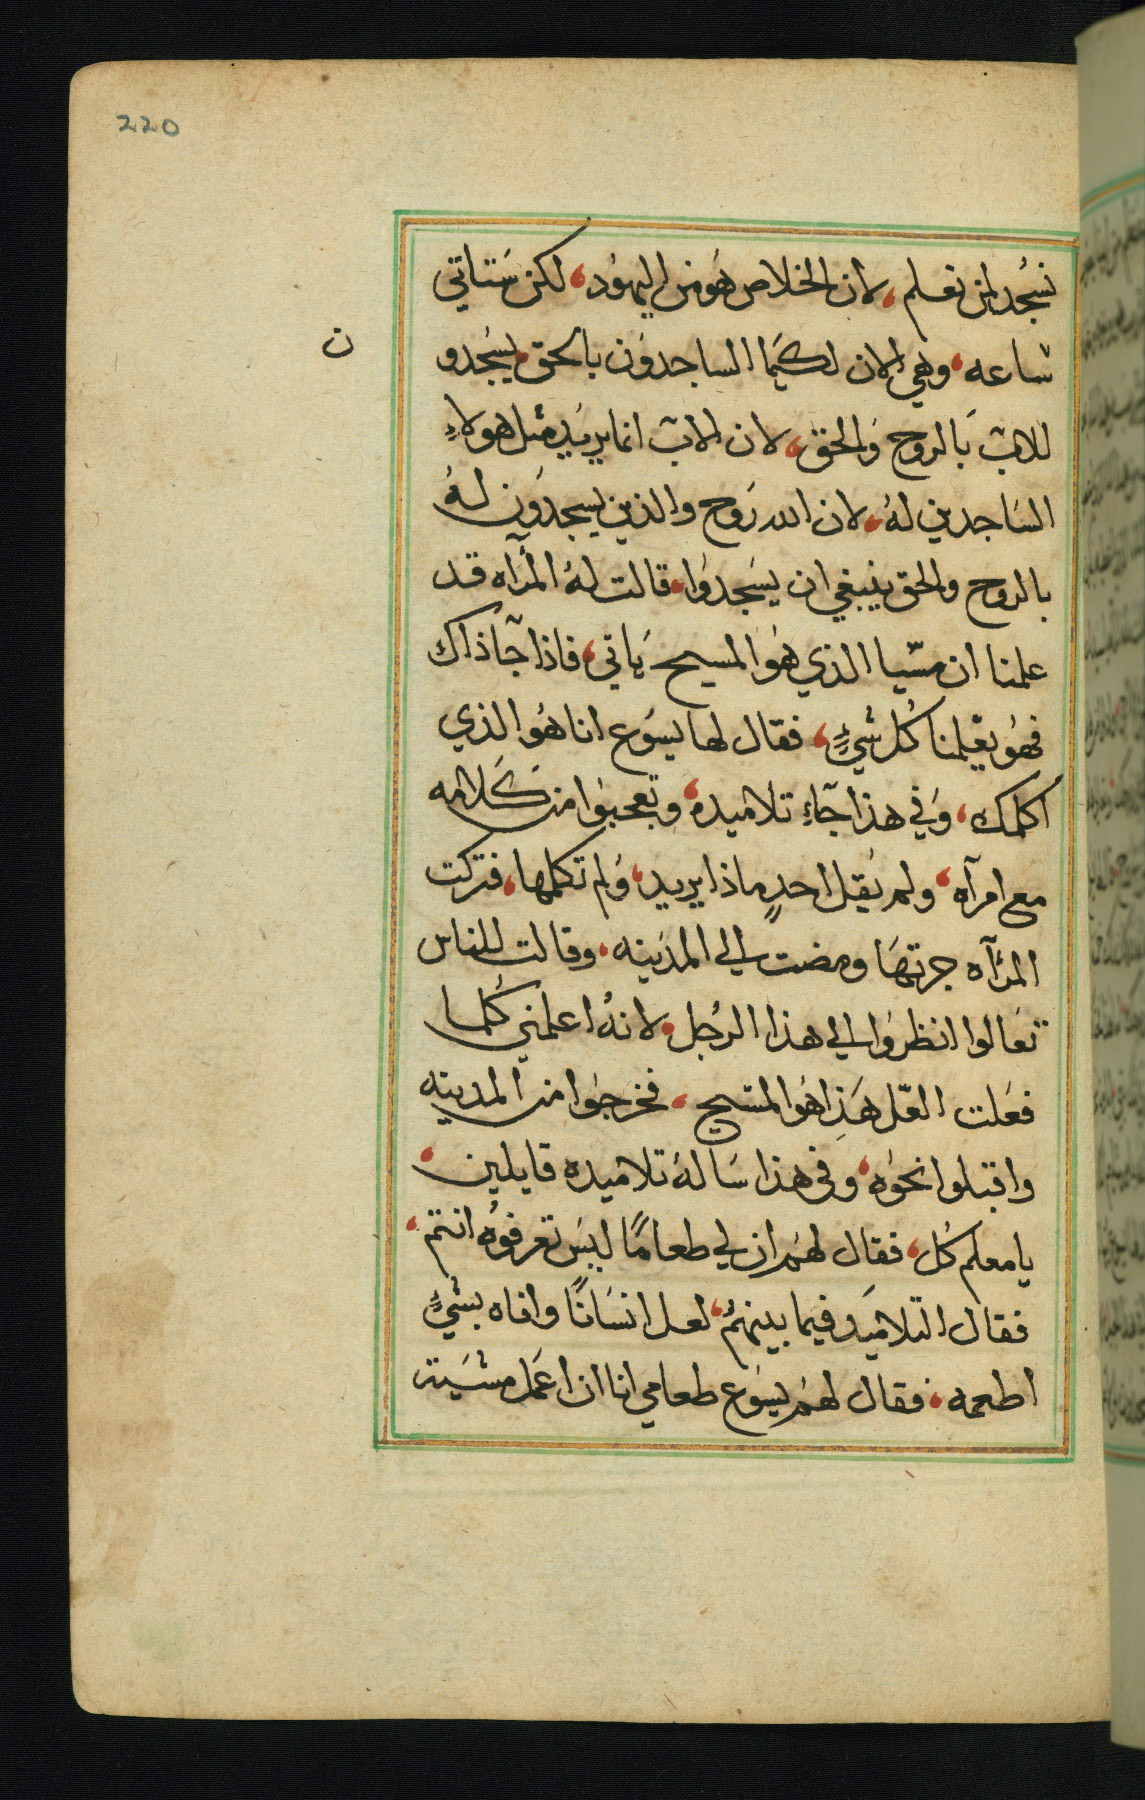 220
نسجد لمن نعلم، لان الخلاص هو من اليهود، لكن ستاتي
ساعه، وهي الان لكيما الساجدون بالحق يسجدو
ن
للاب بالروح والحق، لان الاب انما يريد مثل هولاءِ
الساجدين لهُ، لان الله روح والذين يسجدون لهُ
بالروح والحق ينبغي ان يسجدوا، قالت لهُ المرآه قد
علمنا ان مسّيا الذي هو المسيح ياتي، فاذا جآ ذاك
فهو يعّلمنا كُل شيءٍ، فقال لها يسوع انا هو الذي
اكلمك، وفي هذا جآءِ تلاميده، وتعجبوا من كلامه
مع امرآه، ولم يقل احدٍ ماذا يريد، ولم تكلمها، فتركت
المرآه جرتها ومضت الي المدينه، وقالت للناس
تعالوا انظروا الي هذا الرجل، لانهُ اعلمني كُلما
فعلت العّل هَذِا هو المسيح، فخرجوا من المدينه
واقبلوا نحوه، وفي هذا سالهُ تلاميده قايلين،
يا معلم كُل، فقال لهم ان لي طعامًا ليس تعرفوهُ انتم،
فقال التلاميد فيما بينهمُ، لعل انسانًا وافاه بشيءٍ
اطعمه، فقال لهم يسوع طعامي انا ان اعمل مشية